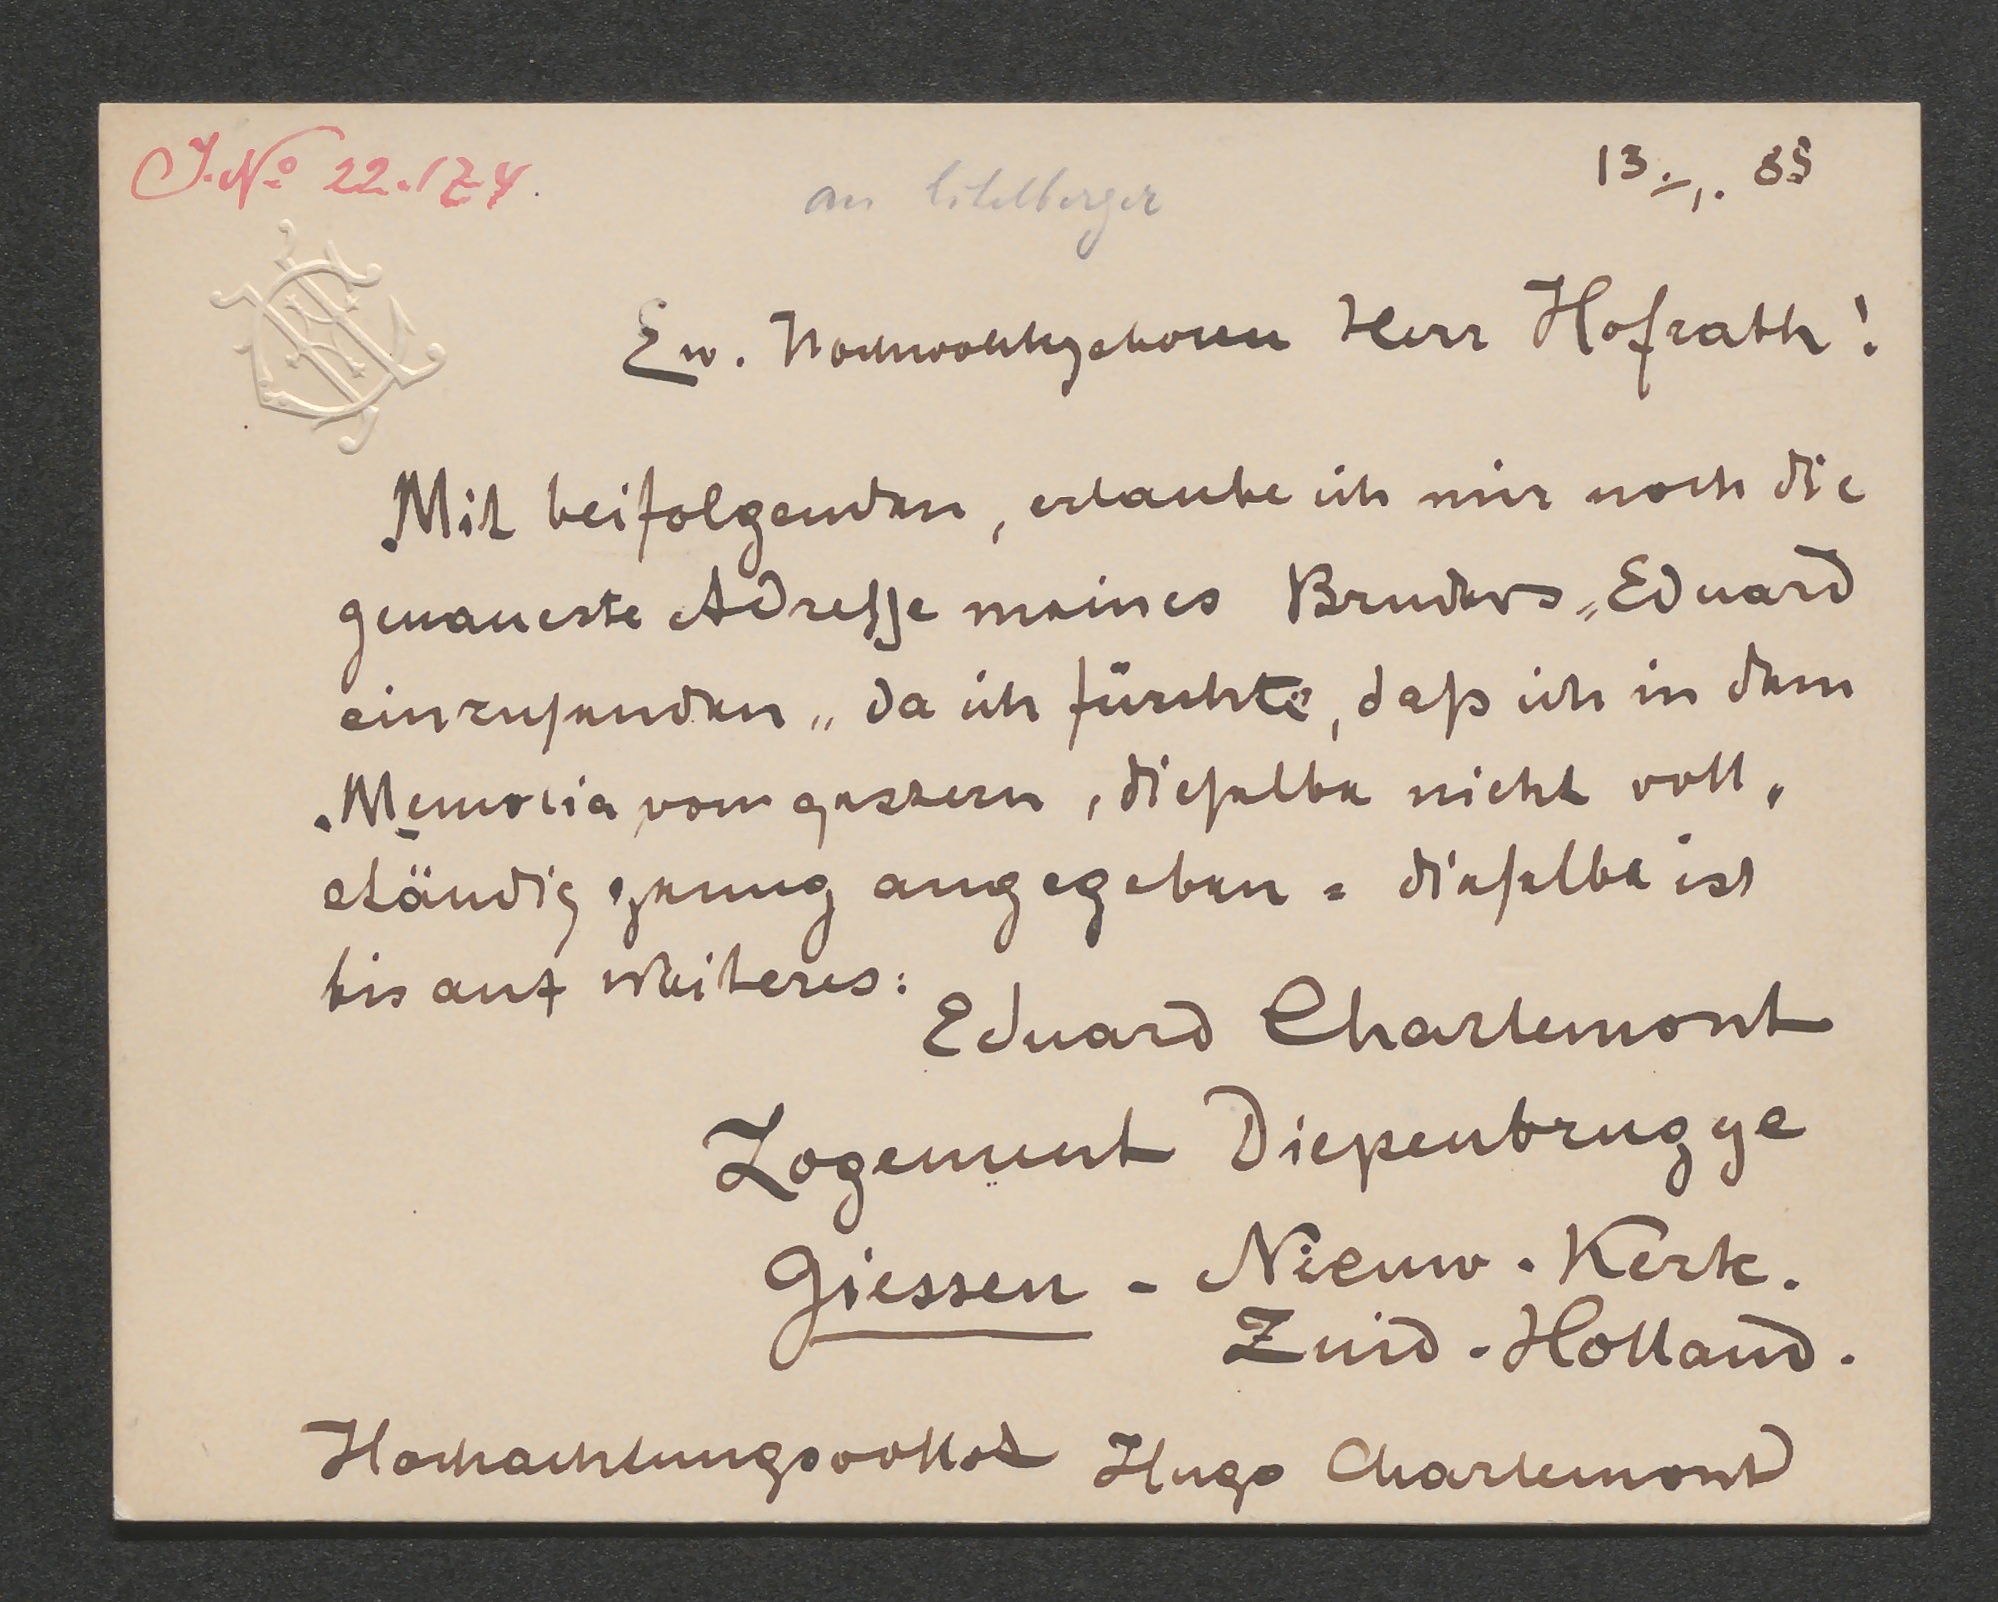 J. No 22.174.
an Eitelberger
13./1. 85
Ew. Hochwohlgeboren Herr Hofrath!
Mit beifolgenden, erlaube ich mir noch die
genaueste Adresse meines Bruders „Eduard
einzusenden„ da ich fürchte, daß ich in dem
Memoria vom gestern, dieselbe nicht voll„
ständig genug angegeben = dieselbe ist
bis auf Weiteres:
Eduard Charlemont
Logement Diepenbrugge
Giessen - Nieuw - Kerk.
Zuid - Holland.
Hochachtungsvollst Hugo Charlemont